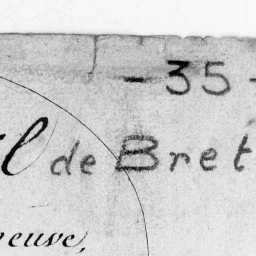 - 35 -
l de Bret
neuve,